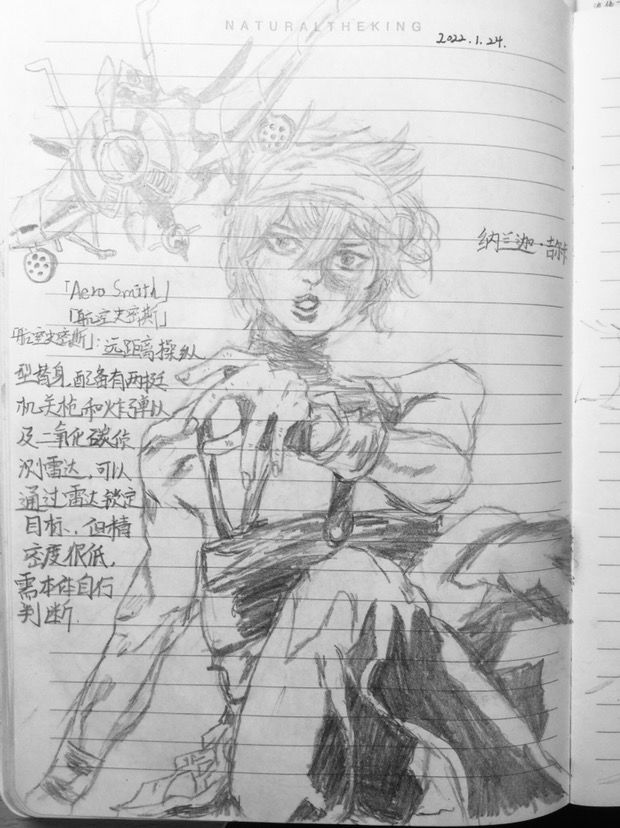 NATURALTHEKING
2022.1.24.
纳兰迦·吉尔卡
「Aero Smith」
「航空史密斯」
「航空史密斯」：远距离操纵
型替身，配备有两挺
机关枪和炸弹以
及二氧化碳侦
测雷达，可以
通过雷达锁定
目标，但精
密度很低，
需本体自行
判断.